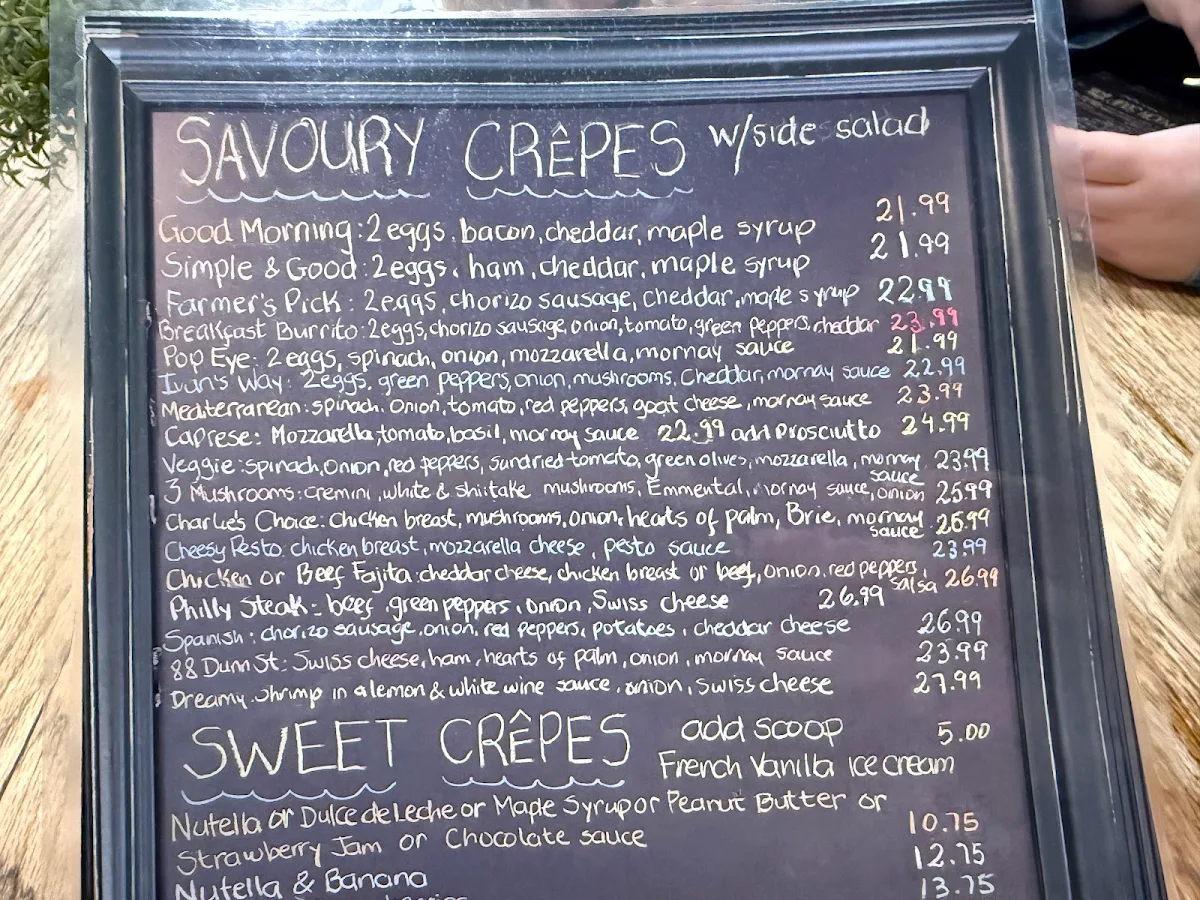 SAVOURY CRÊPES w/side salad
Good Morning: 2eggs, bacon, cheddar, maple syrup 21.99
Simple & Good: 2eggs, ham, cheddar, maple syrup 21.99
Farmer's Pick: 2eggs, chorizo sausage, cheddar, maple syrup 22.99
Breakfast Burrito: 2eggs, chorizo sausage, onion, tomato, green peppers, cheddar 23.99
Pop Eye: 2eggs, spinach, onion, mozzarella, mornay sauce 21.99
Ivan's Way: 2eggs, green peppers, onion, mushrooms, Cheddar, mornay sauce 22.99
Mediterranean: spinach, Onion, tomato, red peppers, goat cheese, mornay sauce 23.99
Caprese: Mozzarella, tomato, basil, mornay sauce 22.99 add Prosciutto 24.99
Veggie: spinach, Onion, red peppers, sundried tomato, green olives, mozzarella, mornay sauce 23.99
3 Mushrooms: cremini, white & shiitake mushrooms, Emmental, mornay sauce, onion 25.99
Charlie's Choice: Chicken breast, mushrooms, onion, hearts of palm, Brie, mornay sauce 26.99
Cheesy Pesto: chicken breast, mozzarella cheese, pesto sauce 23.99
Chicken or Beef Fajita: cheddar cheese, chicken breast or beef, onion, red peppers, salsa 26.99
Philly Steak: beef, green peppers, onion, Swiss cheese 26.99
Spanish: chorizo sausage, onion, red peppers, potatoes, cheddar cheese 26.99
88 Dunn St: Swiss cheese, ham, hearts of palm, onion, mornay sauce 23.99
Dreamy: shrimp in a lemon & white wine sauce, onion, Swiss cheese 27.99
SWEET CRÊPES add scoop 5.00
French Vanilla ice cream
Nutella or Dulce de Leche or Maple Syrup or Peanut Butter or
Strawberry Jam or Chocolate sauce 10.75
Nutella & Banana 12.75
13.75